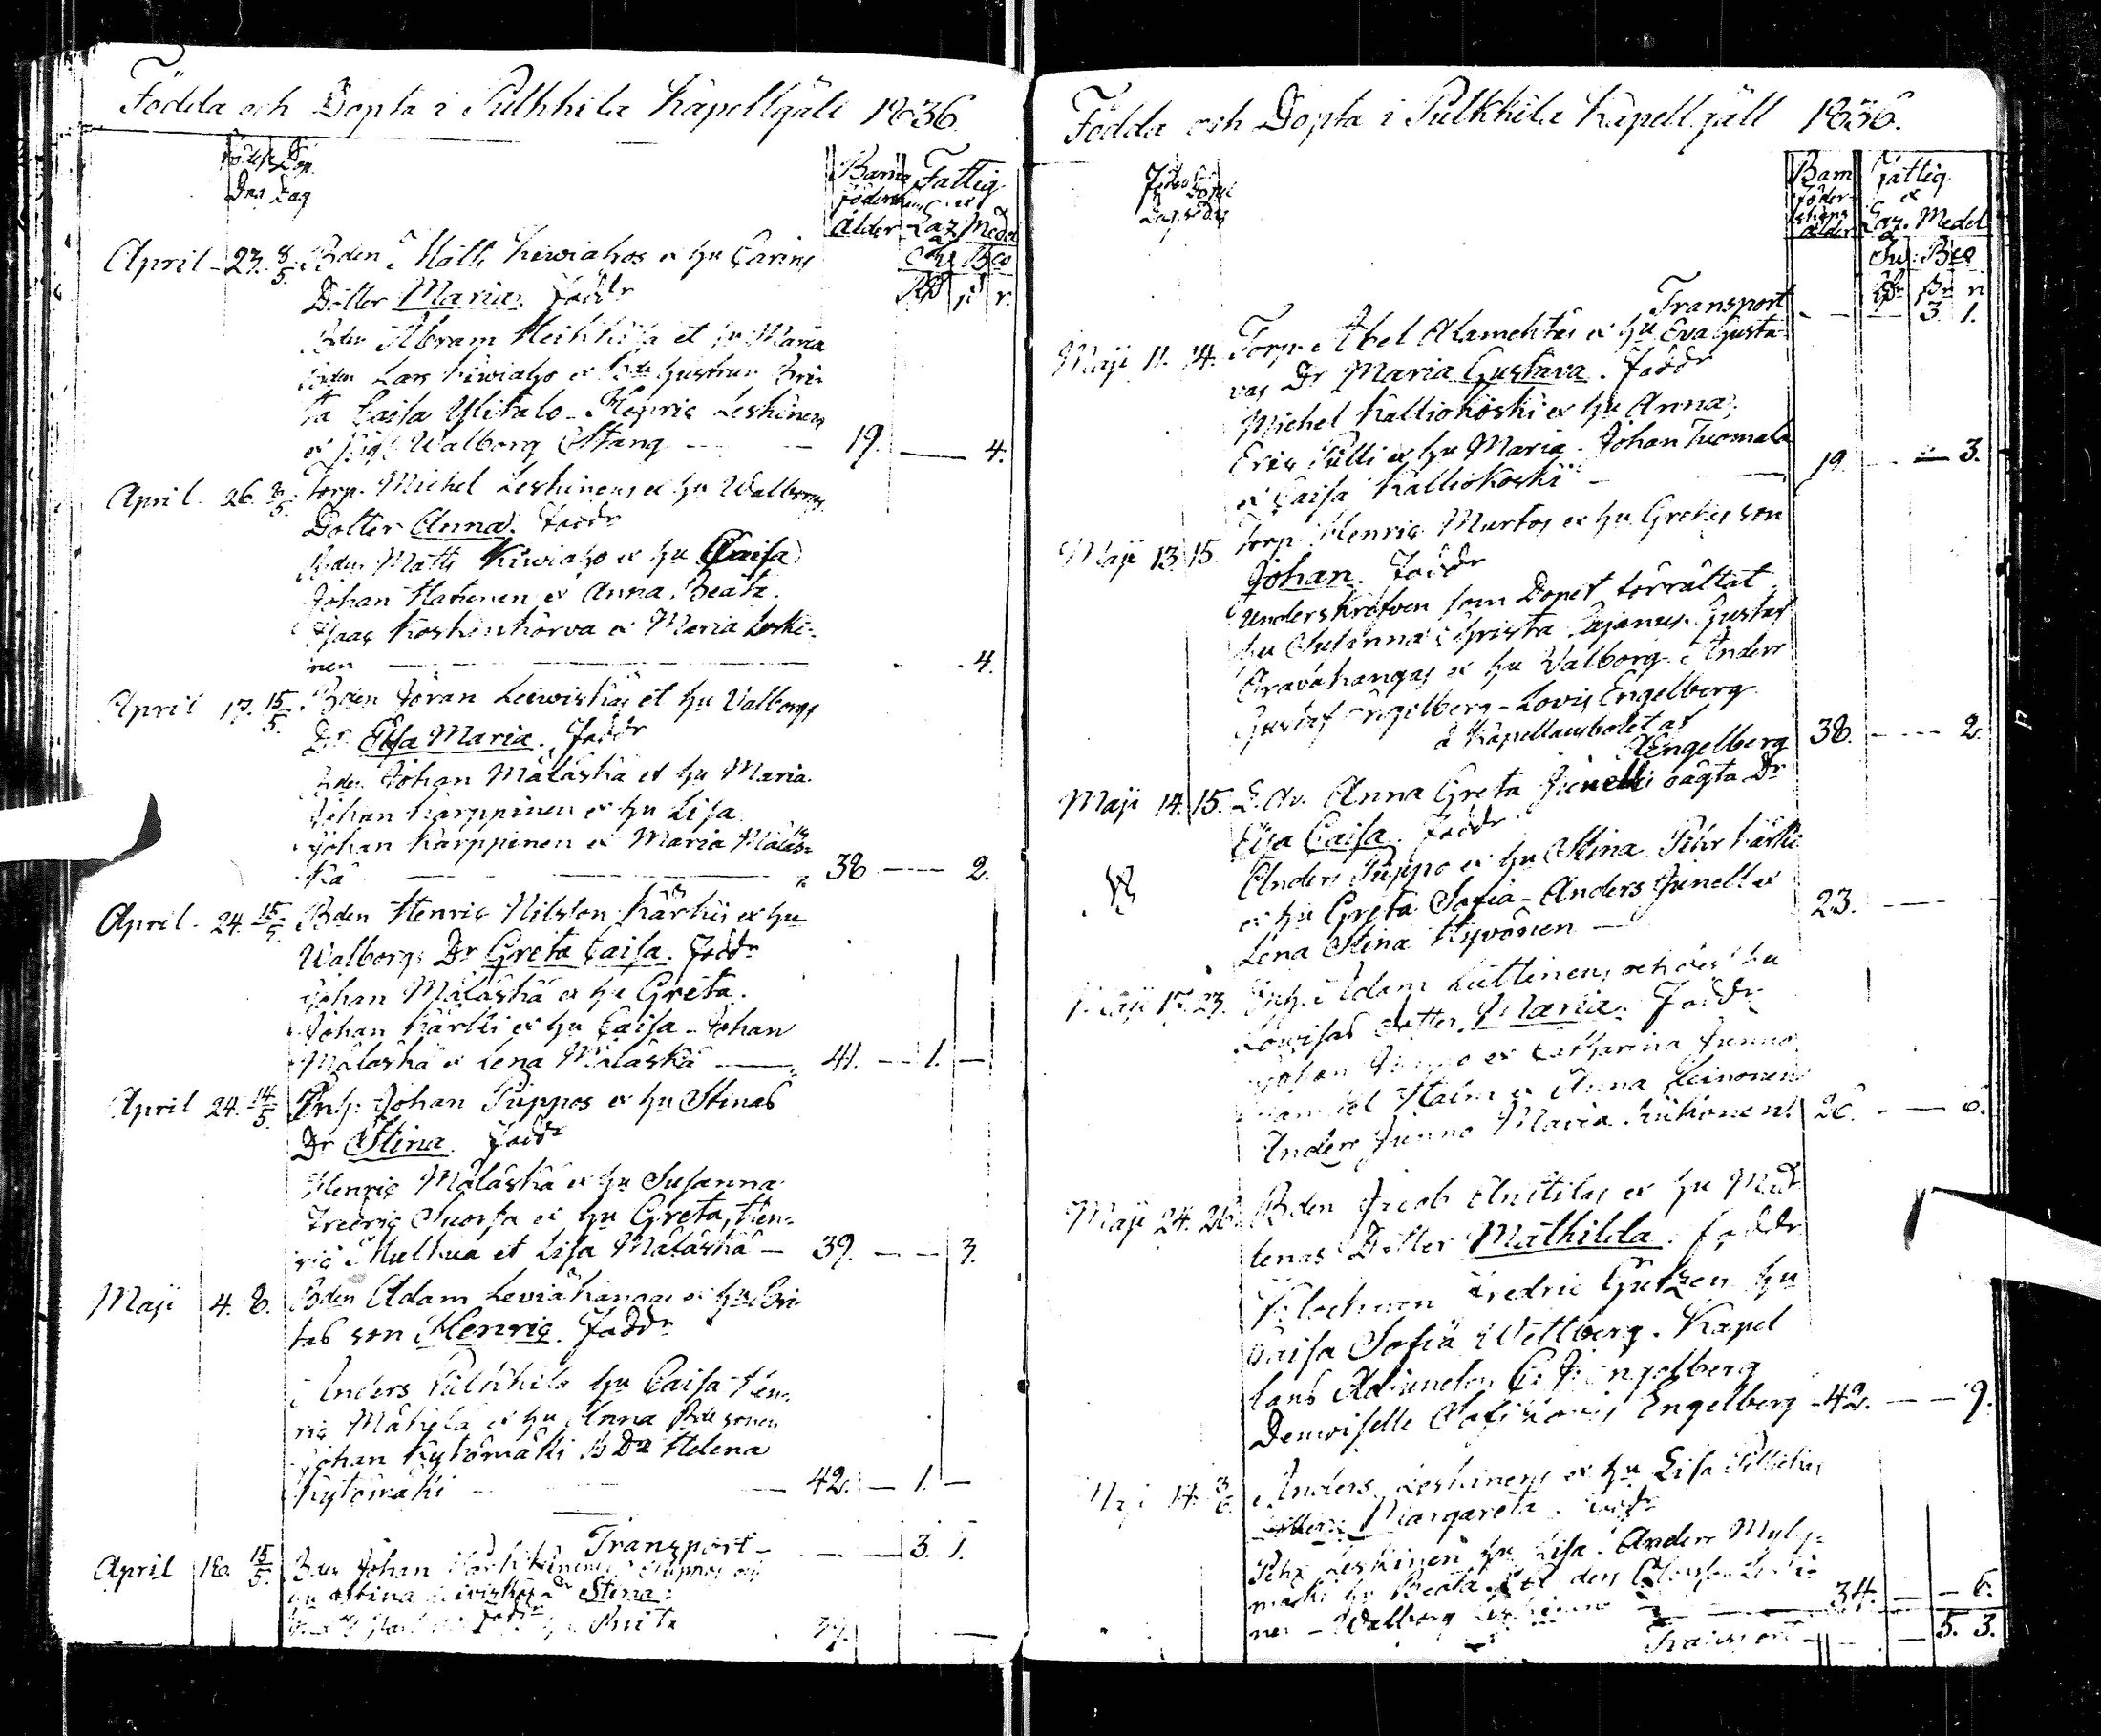 Födda och Döpta i Pulkkila Kapellgäll 1836
Dag Dag
Barna Fattig
Föderskans et
ålder Laz Medel
Bco
April 23. 8/5. Bden Matts Kiwiahos et hu Carins
Dotter Maria. Faddr
Bden Abram Heikkilä et hu Maria
Bden Lars Kiwiaho et Gustava Bri-
ta Caisa Ylitalo Henric Leskinen
et Walborg Stång 19. 4.
April 26. 8/5. Torp. Michel Leskinens et hu Walborgs
Dotter Anna. Faddr
Bden Matts Kiwiaho et hu Caisa
Johan Hatunen et Anna Beata.
Isaac Koskenkorva et Maria Leski-
nen 4.
April 17. 15/5. Bden Jöran Leiviskäs et hu Valborgs
Dr Elsa Maria. Faddr
Bden Johan Mäläskä et hu Maria.
Johan Karppinen et hu Lisa.
Johan Karppinen et Maria Mäläs-
kä 38 2.
April 24. 15/5. Bden Henric Nilsson Kärkis et hu
Walborgs Dr Greta Caisa. Faddr
Johan Mäläskä et hu Greta.
Johan Kärki et hu Caisa - Johan
Mäläskä et Lena Mäläskä 41. 1.
April 24. 14/5. Inh. Johan Puppos et hu Stinas
Dr Stina. Faddr
Henric Mäläskä et hu Susanna.
Fredric Suorsa et hu Greta, Hen-
ric Mulkua et Lisa Mäläskä 39. 3.
Maji 4. 8. Bden Adam Leviäkangas et hu Bri-
tas son Henric. Faddr
Anders Pulkkila hu Caisa Hen-
ric Mäkelä et hu Anna Bde sonen
Johan Kytömäki B Dr Helena
Kytömäki 42. 1.
Transport 3. 1.
April 18. 15/5. Bden Johan
hu Stina Dr Stina:
Faddr Brita 37.
Födda och Döpta i Pulkkila Kapellgäll 1836.
Barn Fattig
föder- et
skans Laz. Medel
ålder Bco
Transport 3. 1.
Maji 11. 14. Torp. Abel Alamehtäs et hu Eva Gusta-
vas Dr Maria Gustava. Faddr
Michel Kalliokoski et hu Anna,
Eric Pulli et hu Maria. Johan Tuomala
et Caisa Kalliokoski 19. 3.
Maji 13. 15. Torp. Henric Murtos et hu Gretas son
Johan. Faddr
Underskrefven som Dopet förrättat
hu Susanna Christa Cajanus. Gustaf
Aravakangas et hu Valborg. Anders
Gustaf Engelberg - Lovis Engelberg
å Kapellansbolet af
Engelberg 38. 2.
Maji 14. 15. Anna Greta Junells oägta Dr
Elsa Caisa. Faddr
Anders Puppo et hu Stina Petr Kärki
et hu Greta Sofia - Anders Junell et
Lena Stina Hyvönen 23.
Maji 17. 23. Inh. Adam Luttinens och dess hu
Lowisas dotter Maria. Faddr
Johan Junno et Catharina Junno
Samuel Halm et Anna Leinonen
Anders Junno Maria 26. 6.
Maji 24. 26. Bden Jacob Anttilas et hu Mad-
lenas Dotter Mathilda. Faddr
Klockaren Fredric Gutzen hu
Caisa Sofia Wettberg. Kapel-
lans Adjuncten Engelberg
Demoiselle Engelberg 42. 9.
Anders Leskinens et hu Lisa
Dotter Margareta. Faddr
Petr Leskinen hu Lisa. Anders Myly-
mäki hu Beata.
nen - Walborg Leskinen 34. 6.
Transport 5. 3.